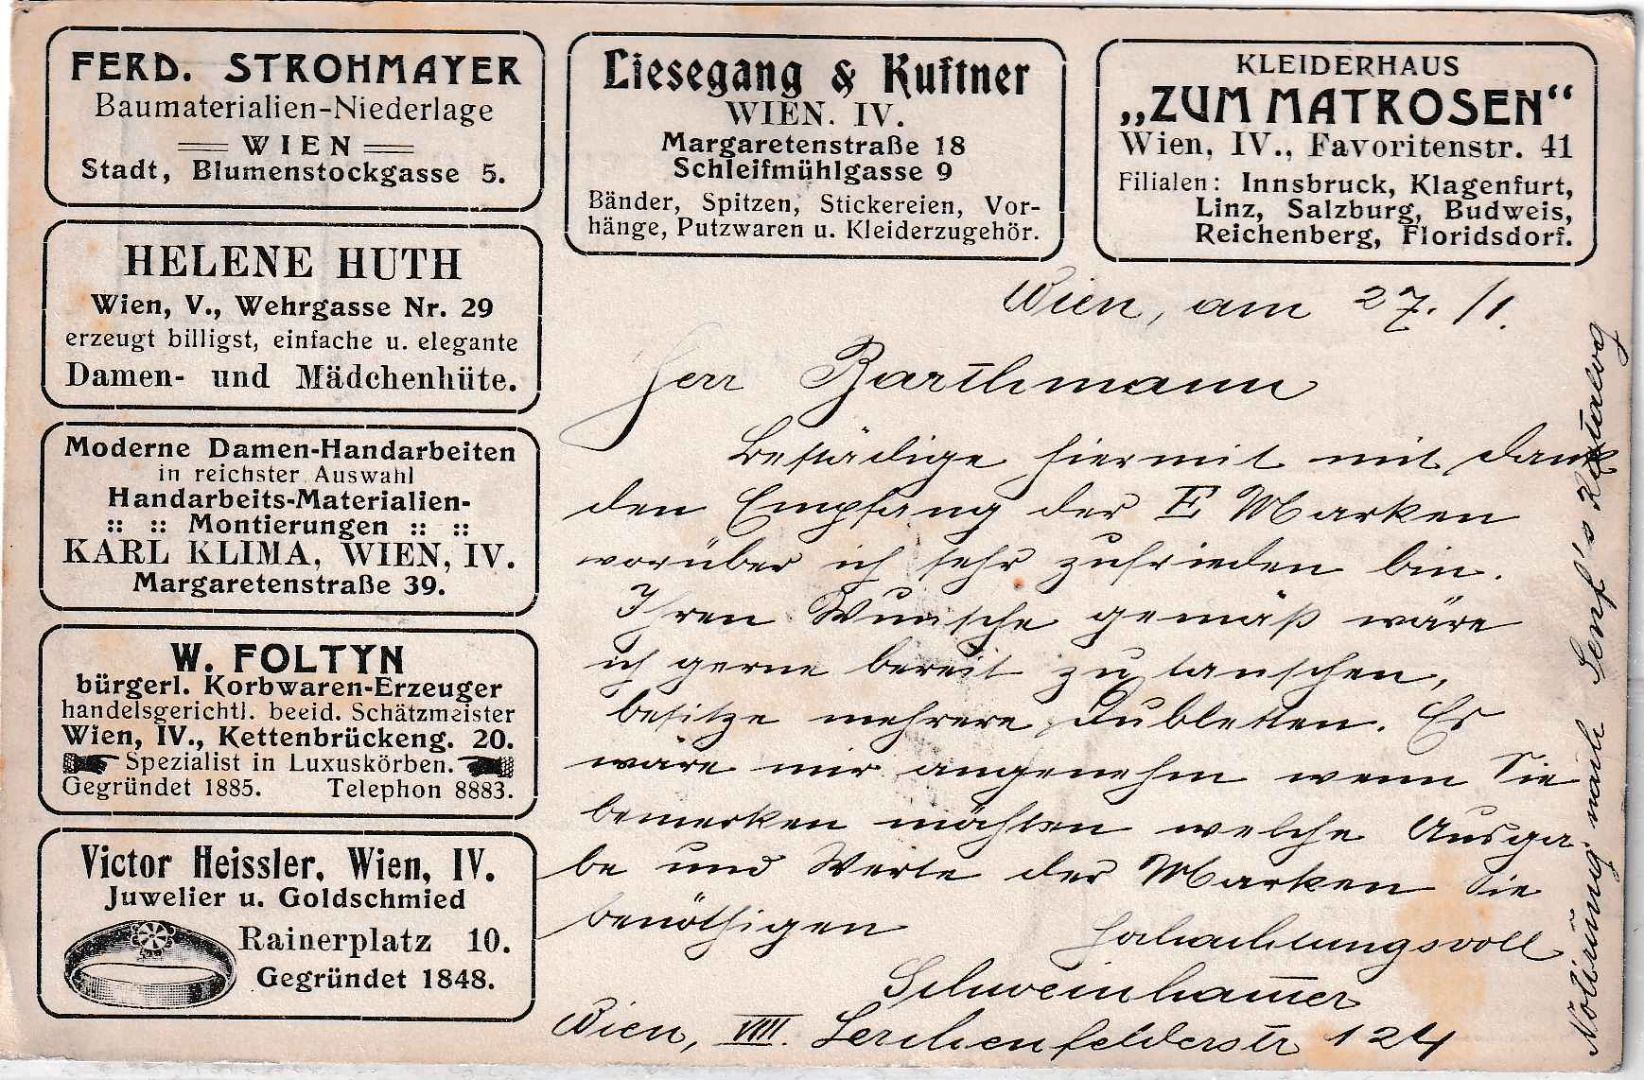 FERD. STROHMAYER
Baumaterialien-Niederlage
WIEN
Stadt, Blumenstockgasse 5.
Liesegang & Kuftner
WIEN. IV.
Margaretenstraße 18
Schleifmühlgasse 9
Bänder, Spitzen, Stickereien, Vor-
hänge, Putzwaren u. Kleiderzugehör.
KLEIDERHAUS
„ZUM MATROSEN“
Wien, IV., Favoritenstr. 41
Filialen: Innsbruck, Klagenfurt,
Linz, Salzburg, Budweis,
Reichenberg, Floridsdorf.
HELENE HUTH
Wien, V., Wehrgasse Nr. 29
erzeugt billigst, einfache u. elegante
Damen- und Mädchenhüte.
Moderne Damen-Handarbeiten
in reichster Auswahl
Handarbeits-Materialien-
:: :: Montierungen :: ::
KARL KLIMA, WIEN, IV.
Margaretenstraße 39.
W. FOLTYN
bürgerl. Korbwaren-Erzeuger
handelsgerichtl. beeid. Schätzmeister
Wien, IV., Kettenbrückeng. 20.
Spezialist in Luxuskörben.
Gegründet 1885. Telephon 8883.
Victor Heissler, Wien, IV.
Juwelier u. Goldschmied
Rainerplatz 10.
Gegründet 1848.
Wien, am 27./1.
Herr Barthmann
Bestädige hiermit mit Dank
den Empfang der E Marken
worüber ich sehr zufrieden bin.
Ihren Wunsche gemäß wäre
ich gerne bereit zu tauschen,
besitze mehrere Dubletten. Es
wäre mir angenehm wenn Sie
bemerken möchten welche Ausga-
be und Werte der Marken Sie
benöthigen
Hochachtungsvoll
Schweinhammer
Wien, VIII. Lerchenfelderstr 124
Notirung nach Senf's Katalog